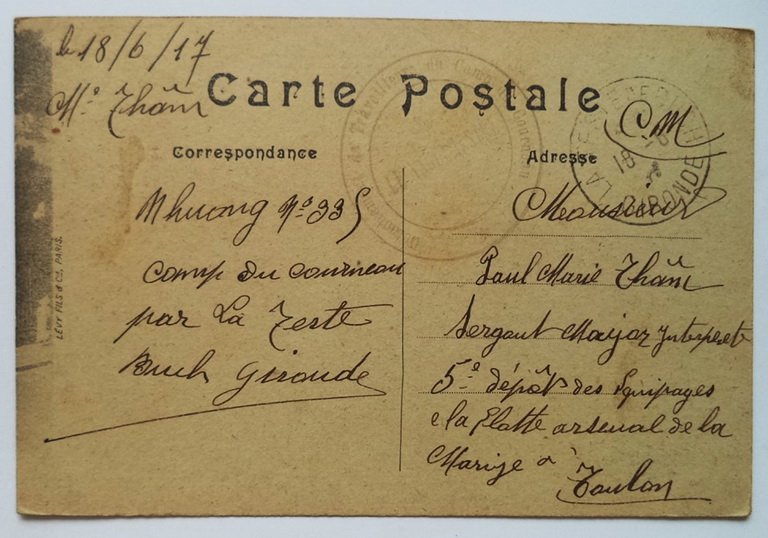 le 18/6/17
Mr Thâm
Carte Postale
CM
Correspondance
Adresse
Nhuong No 335
camp du courneau
par La Teste
Buch Gironde
Monsieur
Paul Marie Thâm
Sergent Major Interprete
5e dépôts des Equipages
de la Flotte arsenal de la
Marine à
Toulon
LÉVY FILS & Cie, PARIS.
LA TESTE DE BUCH
18 -6
GIRONDE